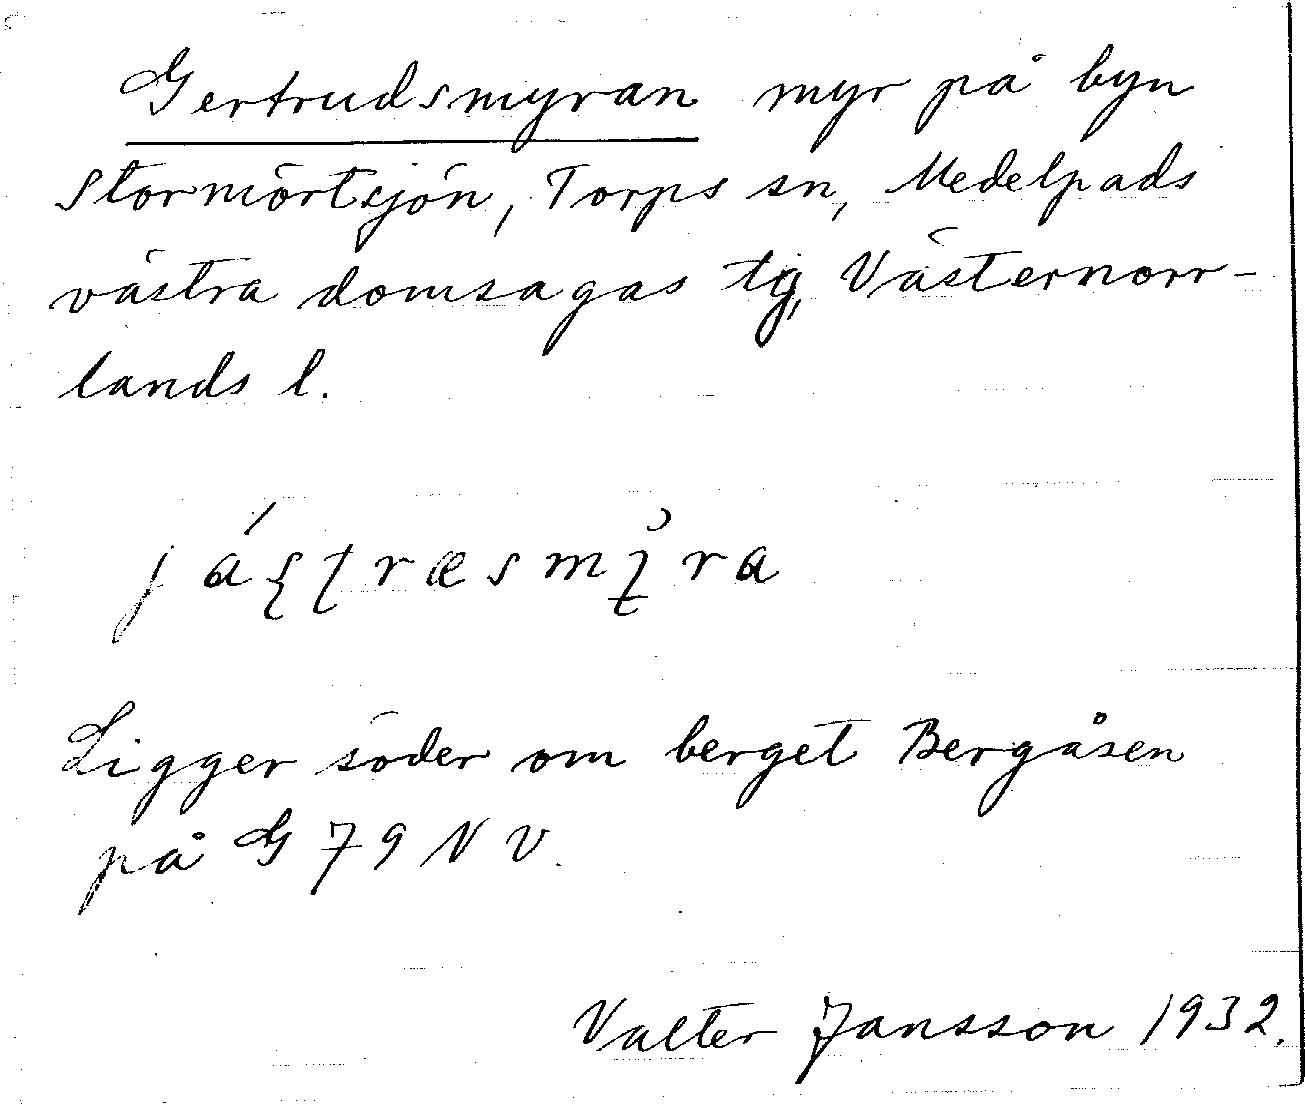 Gertrudsmyran myr på byn
Stormörtsjön, Torps sn, Medelpads
västra domsagas tg, Västernorr-
lands l.
Ligger söder om berget Bergåsen
på G 79 NV.
Valter Jansson 1932.